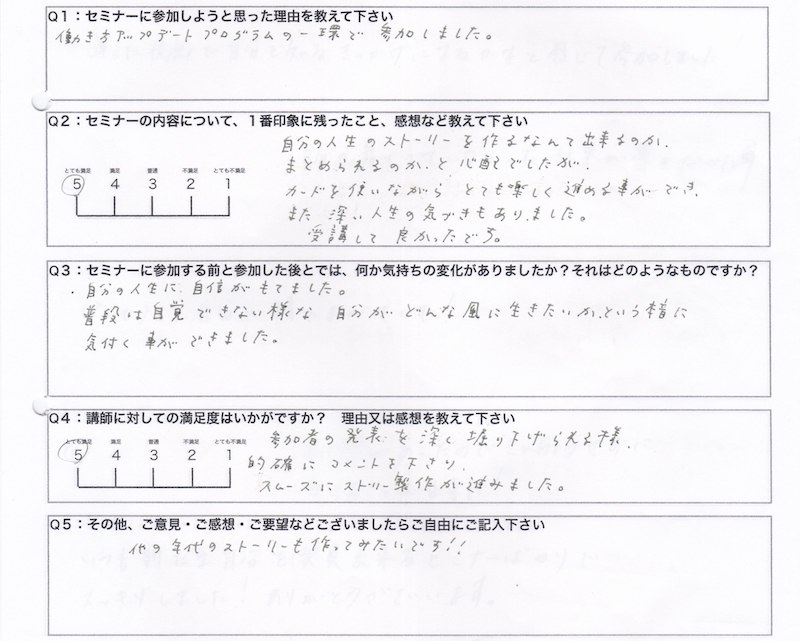 Q1：セミナーに参加しようと思った理由を教えて下さい
働き方アップデートプログラムの一環で参加しました。
Q2：セミナーの内容について、1番印象に残ったこと、感想など教えて下さい
自分の人生のストーリーを作るなんて出来るのか、
まとめられるのか、と心配でしたが、
カードを使いながらとても楽しく進める事ができ、
また深い人生の気づきもありました。
受講して良かったです。
とても満足 満足 普通 不満足 とても不満足
5 4 3 2 1
Q3：セミナーに参加する前と参加した後とでは、何か気持ちの変化がありましたか？それはどのようなものですか？
・自分の人生に自信がもてました。
普段は自覚できない様な自分がどんな風に生きたいか、という本音に
気付く事ができました。
Q4：講師に対しての満足度はいかがですか？　理由又は感想を教えて下さい
とても満足 満足 普通 不満足 とても不満足
5 4 3 2 1
参加者の発表を深く掘り下げられる様、
的確にコメントを下さり、
スムーズにストーリー製作が進みました。
Q5：その他、ご意見・ご感想・ご要望などございましたらご自由にご記入下さい
他の年代のストーリーも作ってみたいです!!